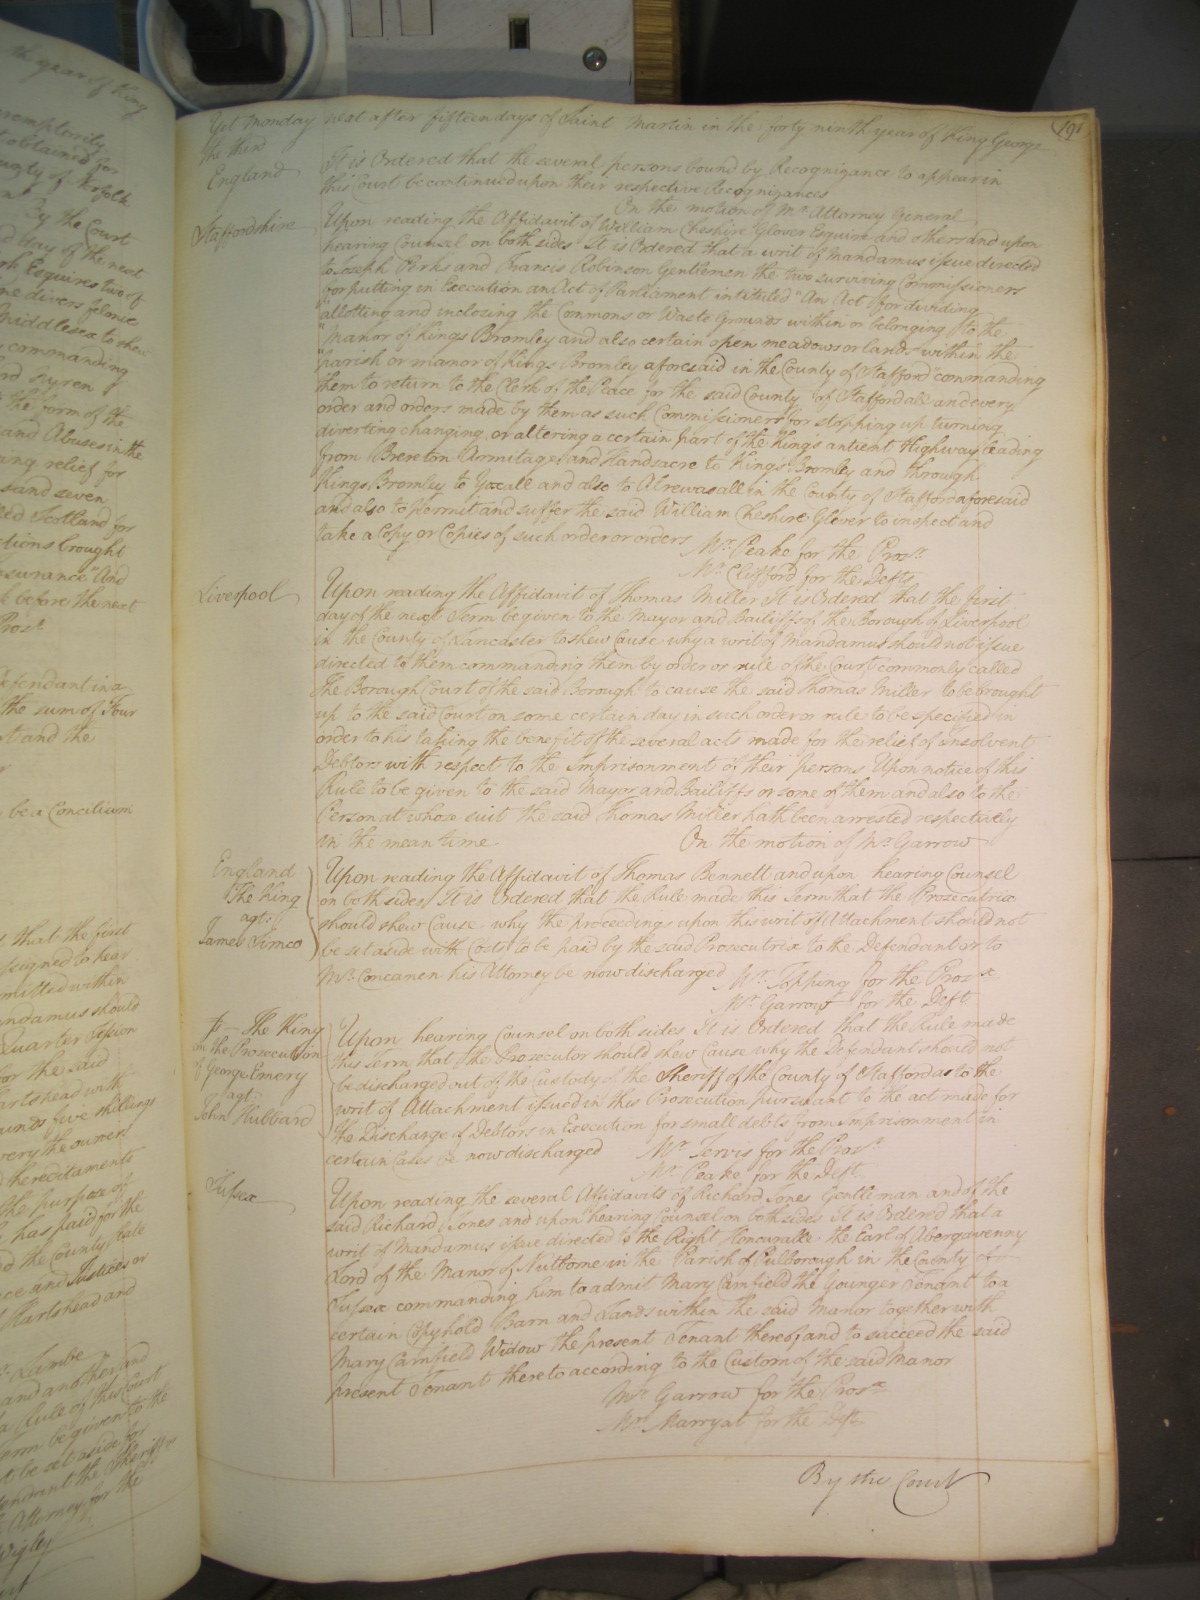 th year of King
peremptorily
obtained for
County of Norfolk
By the Court
day of the next
Esquires two of
me divers felonies
Middlesex to shew
commanding
the form of the
and Abuses in the
ing relief for
sand seven
led Scotland for
tions brought
surance" And
before the next
Pros.r
Defendant in a
the sum of Four
rt and the
be a Concilium
that the first
ssigned to hear
mitted within
andamus should
Quarter Session
for the said
artshead with
ounds five shillings
very the owner
Hereditaments
the purpose of
has paid for the
the County rate
ace and Justices or
Hartshead and
Lambe
and another and
a Rule of this Court
Term be given to the
be set aside for
fendant the Sheriff
Attorney for the
Wigley
191
Yet Monday next after fifteen days of Saint Martin in the forty ninth year of King George
the third
England It is Ordered that the several persons bound by Recognizance to appear in
this Court be continued upon their respective Recognizances
On the motion of Mr. Attorney General
Staffordshire Upon reading the Affidavit of William Cheshire Glover Esquire and others and upon
hearing Counsel on both sides It is Ordered that a writ of Mandamus issue directed
to Joseph Perks and Francis Robinson Gentlemen the two surviving Commissioners
for putting in Execution an Act of Parliament intituled "An Act for dividing
"allotting and inclosing the Commons or Waste Grounds within or belonging to the
"Manor of Kings Bromley and also certain open meadows or lands within the
"parish or manor of Kings Bromley aforesaid in the County of Stafford" commanding
them to return to the Clerk of the Peace for the said County of Stafford all and every
order and orders made by them as such Commissioners for stopping up turning
diverting changing or altering a certain part of the King's antient Highway leading
from Brereton Armitage and Handsacre to Kings Bromley and through
Kings Bromley to Yoxall and also to Alrewas all in the County of Stafford aforesaid
and also to permit and suffer the said William Cheshire Glover to inspect and
take a Copy or Copies of such order or orders Mr. Peake for the Pros.r
Mr. Clifford for the Defts
Liverpool Upon reading the Affidavit of Thomas Miller It is Ordered that the first
day of the next Term be given to the Mayor and Bailiffs of the Borough of Liverpool
in the County of Lancaster to shew Cause why a writ of Mandamus should not issue
directed to them commanding them by order or rule of the Court commonly called
The Borough Court of the said Borough to cause the said Thomas Miller to be brought
up to the said Court on some certain day in such order or rule to be specified in
order to his taking the benefit of the several acts made for the relief of insolvent
Debtors with respect to the Imprisonment of their persons Upon notice of this
Rule to be given to the said Mayor and Bailiffs or some of them and also to the
Person at whose suit the said Thomas Miller hath been arrested respectively
in the mean time On the motion of Mr. Garrow
England
The King
agt.
James Simco
Upon reading the Affidavit of Thomas Bennett and upon hearing Counsel
on both sides It is Ordered that the Rule made this Term that the Prosecutrix
should shew Cause why the proceedings upon this writ of Attachment should not
be set aside with Costs to be paid by the said Prosecutrix to the Defendant or to
Mr. Concanen his Attorney be now discharged Mr. Topping for the Pros.x
Mr. Garrow for the Deft
The King
on the Prosecution
of George Emery
agt.
John Hubbard
Upon hearing Counsel on both sides It is Ordered that the Rule made
this Term that the Prosecutor should shew Cause why the Defendant should not
be discharged out of the Custody of the Sheriff of the County of Stafford as to the
writ of Attachment issued in this Prosecution pursuant to the act made for
the Discharge of Debtors in Execution for small debts from Imprisonment in
certain Cases be now discharged Mr. Jervis for the Pros.r
Mr. Peake for the Deft.
Sussex Upon reading the several Affidavits of Richard Jones Gentleman and of the
said Richard Jones and upon hearing Counsel on both sides It is Ordered that a
writ of Mandamus issue directed to the Right Honourable the Earl of Abergavenny
Lord of the Manor of Nutborne in the Parish of Pulborough in the County of
Sussex commanding him to admit Mary Camfield the Younger Tenant to a
certain Copyhold Barn and Lands within the said Manor together with
Mary Camfield Widow the present Tenant thereof and to succeed the said
present Tenant thereto according to the Custom of the said Manor
Mr. Garrow for the Pros.x
Mr. Marryat for the Deft.
By the Court